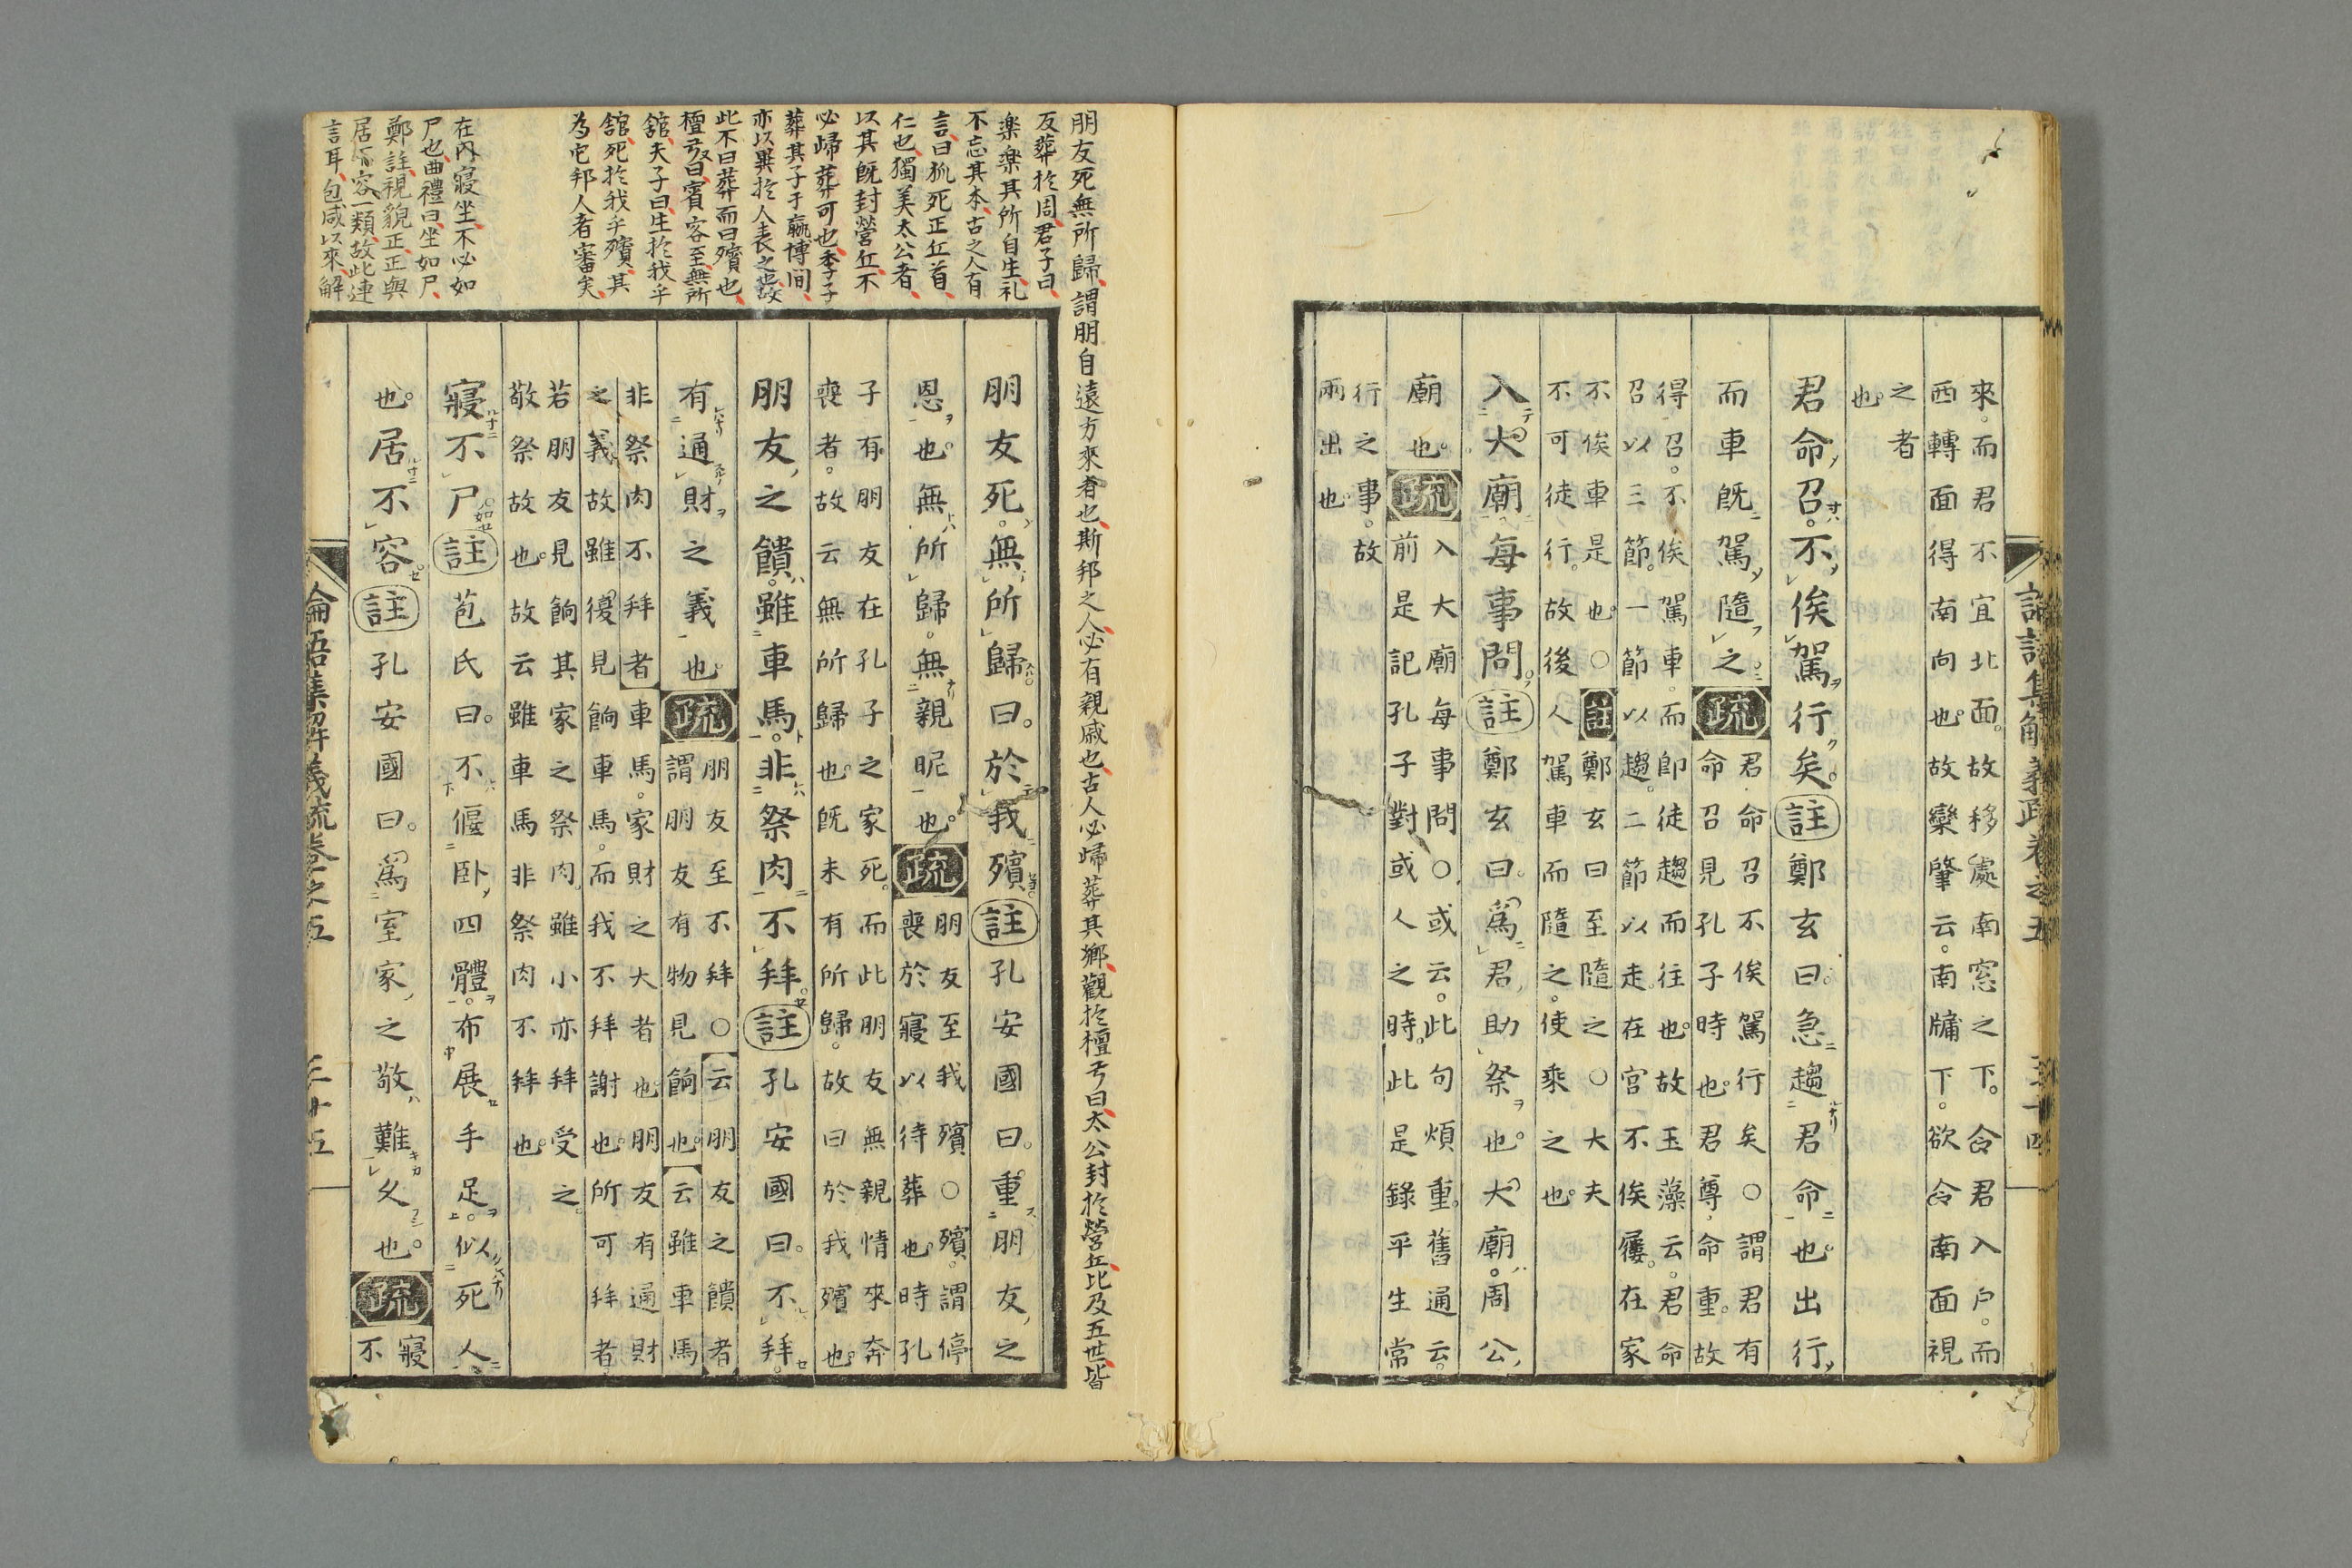 論語集解義疏卷之五
三十四
來。而君不宜北面。故移處南窓之下。令君入戶。而
西轉面得南向也。故欒肇云。南牖下。欲令南面視
之者
也。
君命召。不俟駕行矣。註鄭玄曰。急趨君命也出行
而車既駕隨之疏
君命召不俟駕行矣○謂君有
命召見孔子時也。君尊命重。故
得召。不俟駕車。而即徒趨而往也。故玉藻云。君命
召以三節。一節以趨。二節以走。在官不俟屨。在家
不俟車是也○註鄭玄曰至隨之○大夫
不可徒行。故後人駕車而隨之。使乘之也。
入大廟。每事問。註鄭玄曰。爲君助祭也。大廟。周公
廟也。疏
入大廟每事問○或云。此句煩重。舊通云。
前是記孔子對或人之時。此是錄平生常
行之事。故
兩出也。
朋友死無所歸、謂朋自遠方來者也、斯邦之人必有親戚也、古人必歸葬其鄉、觀於檀弓曰、太公封於營丘、比及五世、皆
反葬於周、君子曰、
楽楽其所自生、礼
不忘其本、古之人有
言曰、狐死正丘首、
仁也、獨美太公者、
以其既封營丘、不
必歸葬可也、季子
葬其子于嬴博間、
亦以異於人表之也、故
此不曰葬而曰殯也、
檀弓又曰、賓客至、無所
舘、夫子曰、生於我乎
舘、死於我乎殯、其
為它邦人者審矣、
在内寢坐、不必如
尸也、曲禮曰、坐如尸、
鄭註、視貌正、正與
居不容一類、故此連
言耳、包咸以來、解
朋友死。無所歸曰。於我殯註孔安國曰。重朋友之
恩也。無所歸。無親昵也。疏
朋友至我殯○殯。謂停
喪於寢以待葬也。時孔
子有朋友在孔子之家死。而此朋友無親情來奔
喪者。故云無所歸也。既未有所歸。故曰於我殯也。
朋友之饋。雖車馬。非祭肉。不拜。註孔安國曰。不拜。
有通財之義也。疏
朋友至不拜○云朋友之饋者
謂朋友有物見餉也。云雖車馬
非祭肉不拜者車馬。家財之大者也朋友有通財
之義。故雖復見餉車馬。而我不拜謝也。所可拜者
若朋友見餉其家之祭肉。雖小亦拜受之。
敬祭故也。故云雖車馬非祭肉不拜也。
寢不尸。註苞氏曰。不偃卧四體。布展手足。似死人
也。居不容註孔安國曰。爲室家之敬難久也。疏
寢
不
論語集解義疏卷之五
三十五